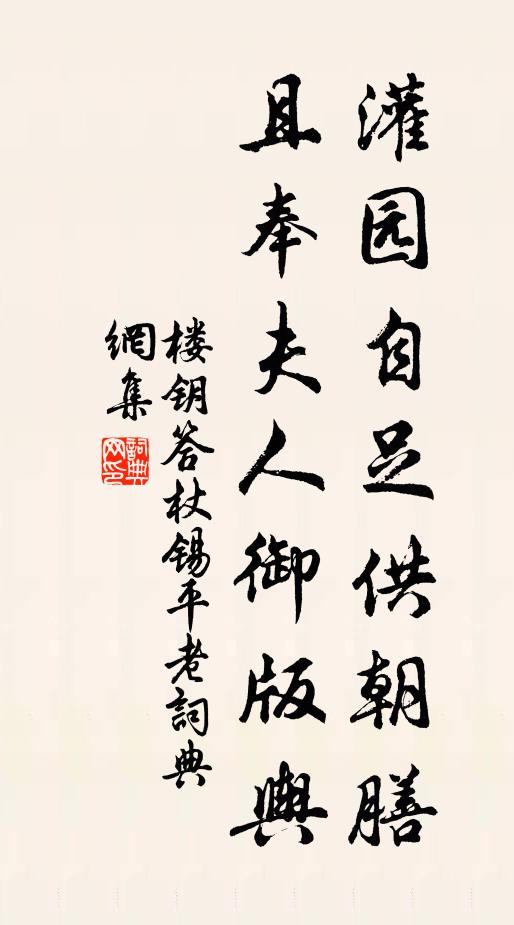 灌园自足供朝膳
且奉夫人御版舆
楼钥答杖锡平老詞典
網集
詞典网印